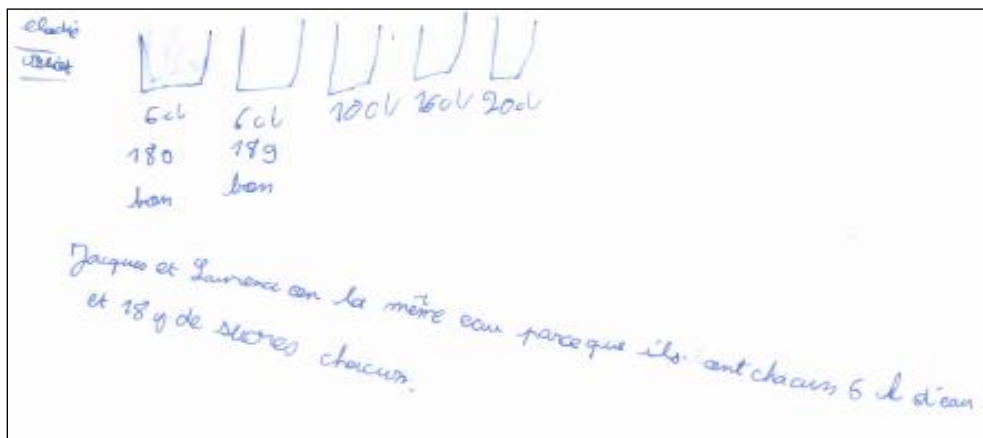 elodie
6cl 6cl 10cl 16cl 20cl
180 189
bon bon
Jacques et Laurence on la même eau parceque ils ont chacun 6 l d'eau
et 18 g de sucres chacun.